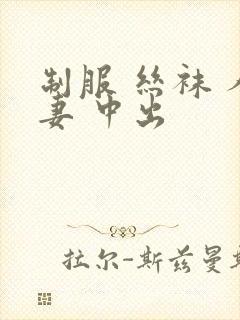 制服 丝袜
妻 中出
拉尔-斯兹曼